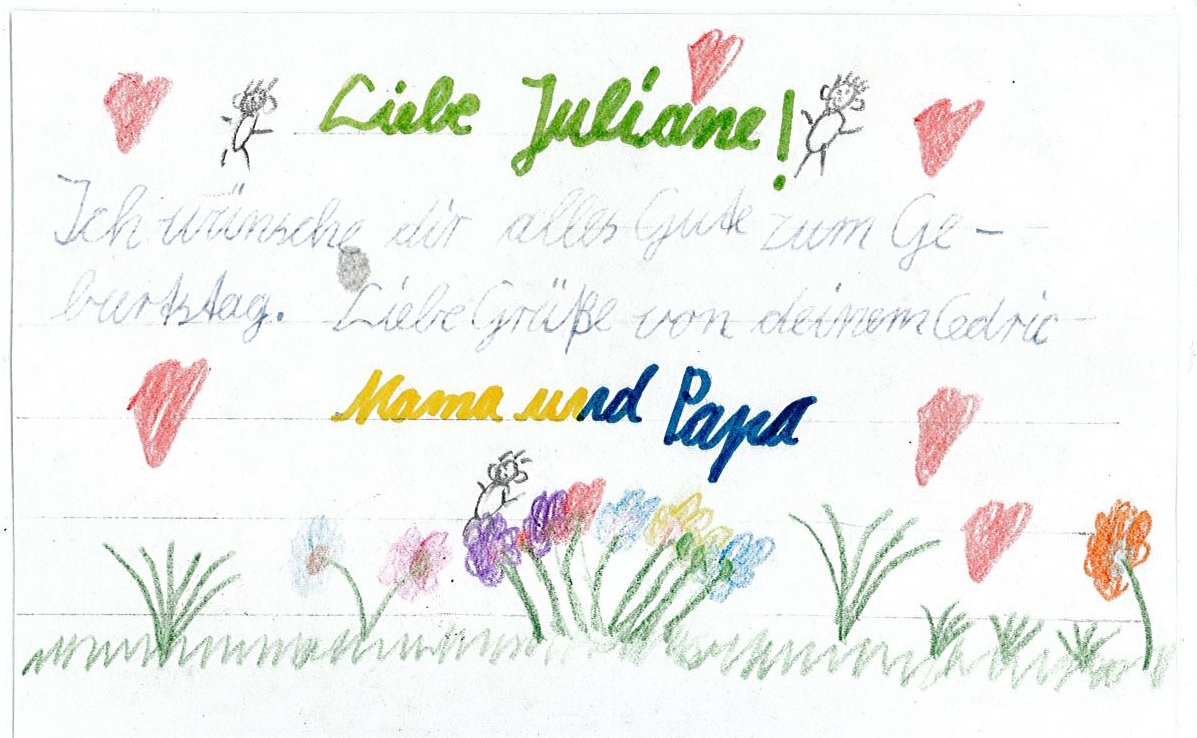 Liebe Juliane!
Ich wünsche dir alles Gute zum Ge-
burtstag. Liebe Grüße von deinem Cedric
Mama und Papa